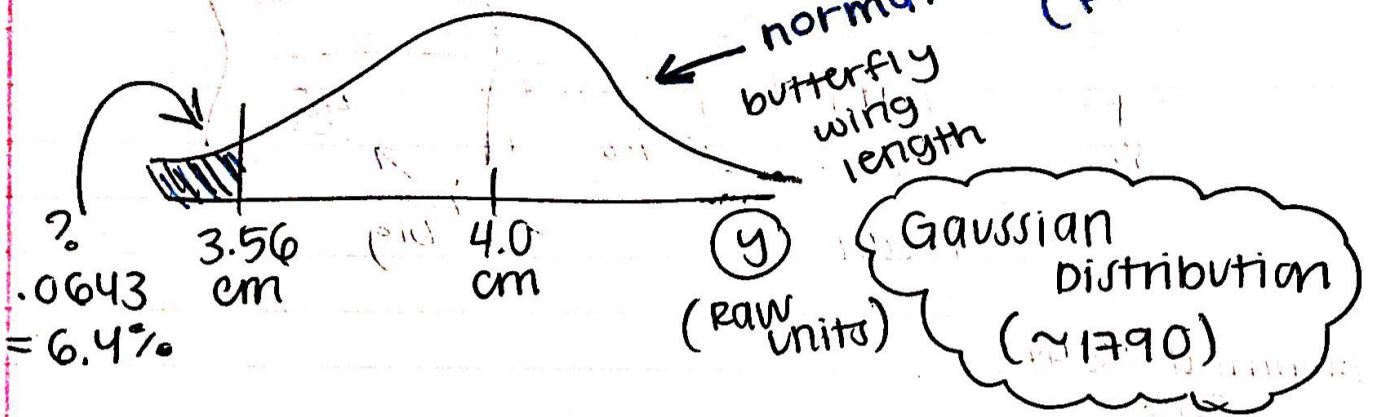 butterfly
wing
length
?
.0643
= 6.4%
3.56
cm
4.0
cm
y
(Raw
units)
Gaussian
Distribution
(~1790)